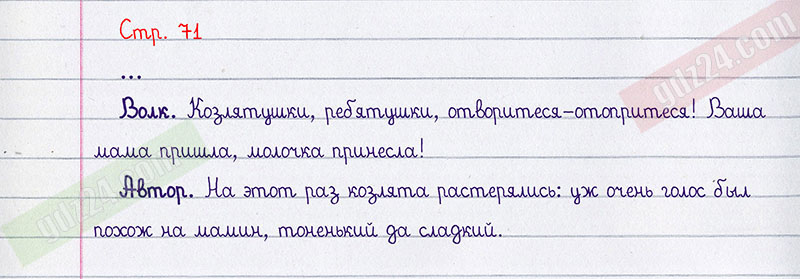 Стр. 71
gdz24.com
...
Волк. Козлятушки, ребятушки, отворитеся-отопритеся! Ваша
мама пришла, молочка принесла!
Автор. На этот раз козлята растерялись: уж очень голос был
похож на мамин, тоненький да сладкий.
gdz24.com